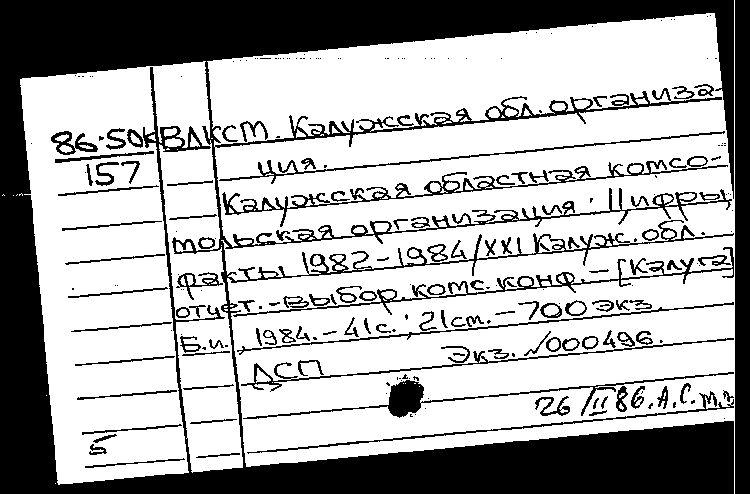 86-50к ВЛКСМ. Калужская обл. организа-
157 ция.
Калужская областная комсо-
мольская организация: Цифры,
факты 1982-1984/XXI Калуж. обл.
отчет.-выбор. комс. конф. - [Калуга]
Б.и., 1984. - 41с.; 21см. - 700 экз.
ДСП Экз. №000496.
26/II 86. А.С.
5